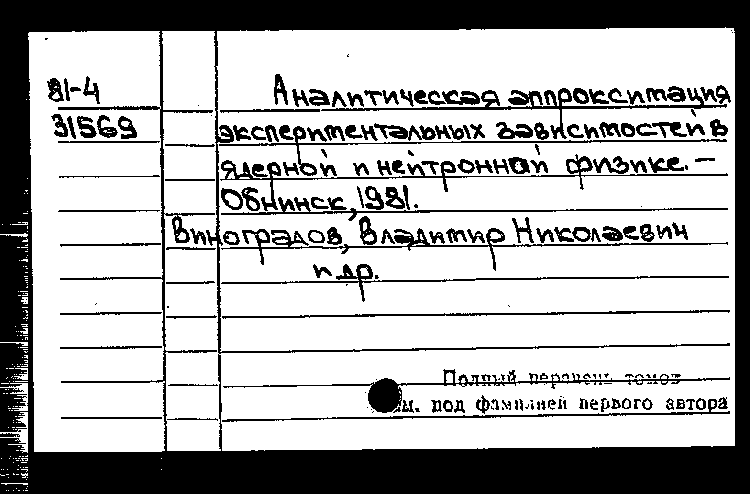 81-4
31569
Аналитическая аппроксимация
экспериментальных зависимостей в
ядерной и нейтронной физике. —
Обнинск, 1981.
Виноградов, Владимир Николаевич
и др.
Полный перечень томов
см. под фамилией первого автора